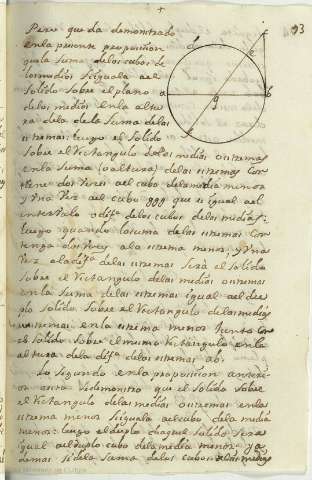 93
Pero queda demonstrado
en la presente proposicion
que la suma de los cubos de
los medios es igual a el
solido sobre el plano a
de los medios en la altu
ra de la suma de las
estremas: luego el solido
sobre el rectangulo de las medias o stremas
en la suma (o altura) de las estremas con
tiene dos veces a el cubo de la media menor
y una vez a el cubo ggg que es igual a el
intervalo o dif.ª de los cubos de las medias:
luego quando la suma de las estremas con
tenga dos veces a la estrema menor, y una
vez a la dif.ª de las estremas será el solido
sobre el rectangulo de las medias o estremas
en la suma de las estremas igual a el
solido sobre el rectangulo de las medias
o estremas en la estrema menor junto con
el solido sobre el mismo rectangulo en la
altura de la dif.ª de las estremas ab.
Lo segundo en la proposicion
el solido sobre
el rectangulo de las medias o estremas en la
estrema menor es igual a el cubo de la media
menor: luego el duplo de aquel solido sera
igual a el duplo cubo de la media menor y a
demas si de la suma de los cubos de las medias
d
c
e
g
b